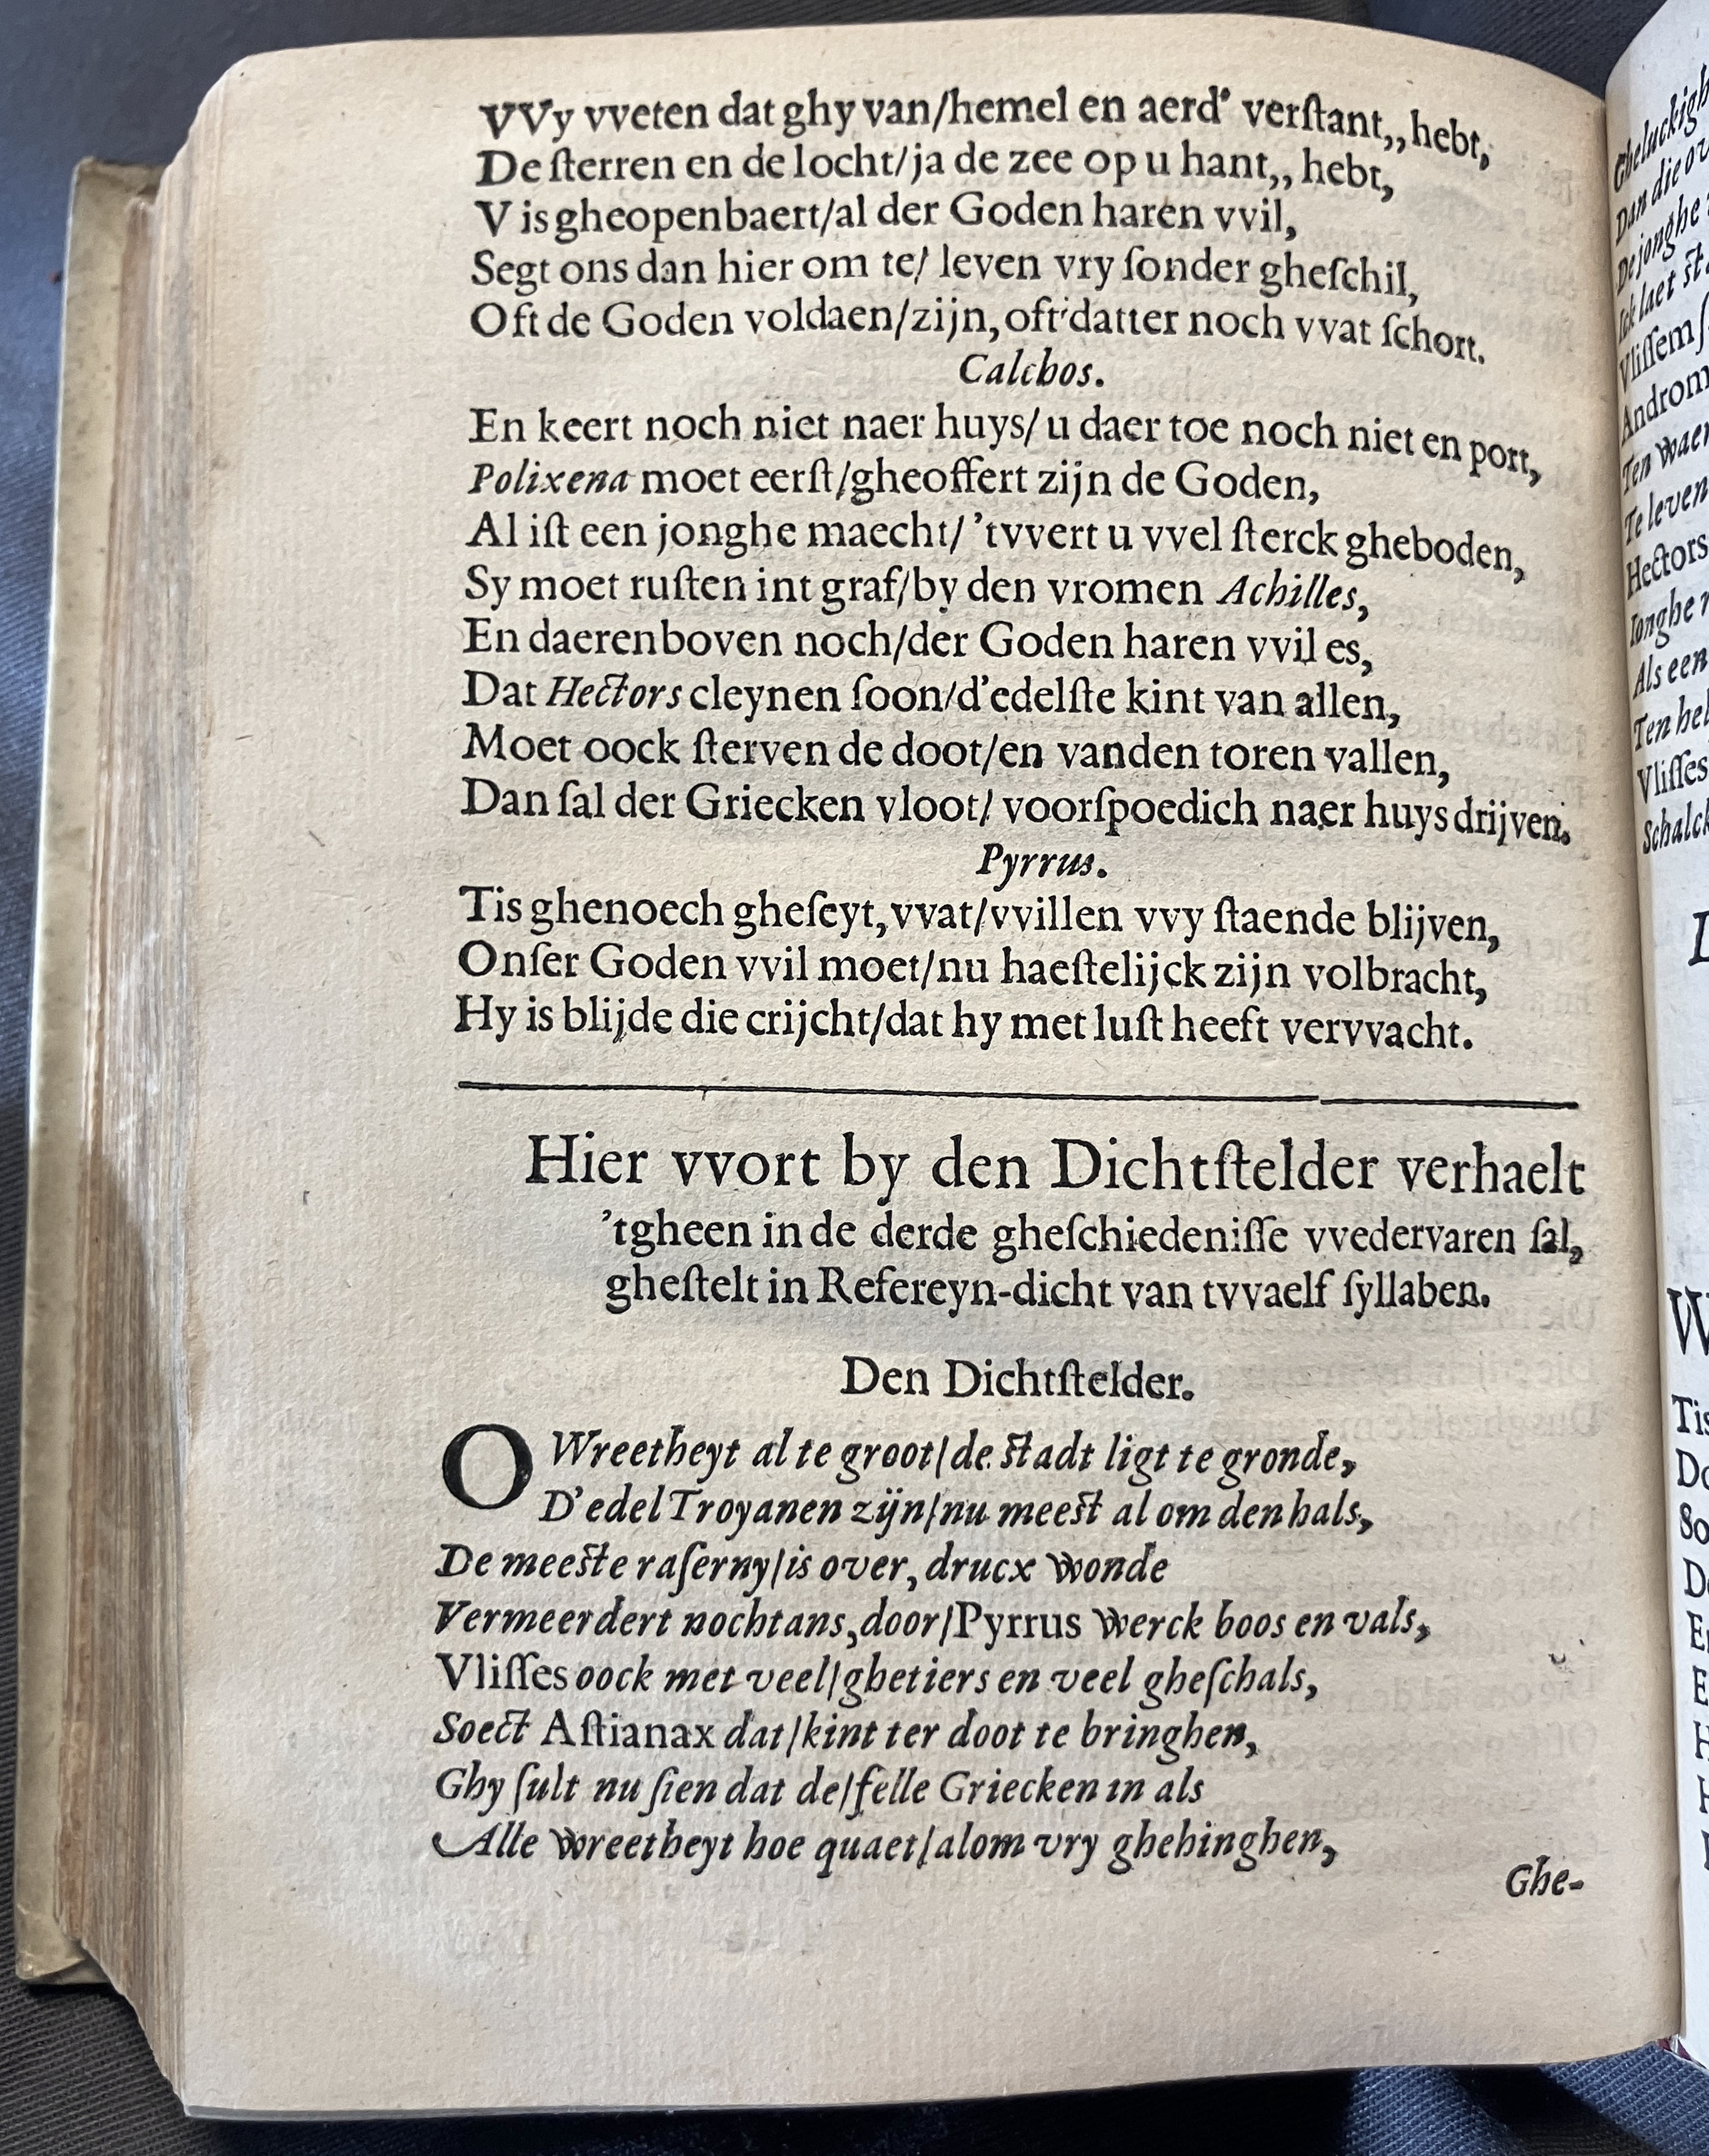 VVy vveten dat ghy van/hemel en aerd' verſtant,, hebt,
De ſterren en de locht/ja de zee op u hant,, hebt,
V is gheopenbaert/al der Goden haren vvil,
Segt ons dan hier om te/ leven vry ſonder gheſchil,
Oft de Goden voldaen/zijn, oft datter noch vvat ſchort.
Calchos.
En keert noch niet naer huys/ u daer toe noch niet en port,
Polixena moet eerſt/gheoffert zijn de Goden,
Al iſt een jonghe maecht/ 'tvvert u vvel ſterck gheboden,
Sy moet ruſten int graf/by den vromen Achilles,
En daerenboven noch/der Goden haren vvil es,
Dat Hectors cleynen ſoon/d'edelſte kint van allen,
Moet oock ſterven de doot/en vanden toren vallen,
Dan ſal der Griecken vloot/ voorſpoedich naer huys drijven.
Pyrrus.
Tis ghenoech gheſeyt, vvat/vvillen vvy ſtaende blijven,
Onſer Goden vvil moet/nu haeſtelijck zijn volbracht,
Hy is blijde die crijcht/dat hy met luſt heeft vervvacht.
Hier vvort by den Dichtſtelder verhaelt
'tgheen in de derde gheſchiedeniſſe vvedervaren ſal,
gheſtelt in Refereyn-dicht van tvvaelf ſyllaben.
Den Dichtſtelder.
O Wreetheyt al te groot/de ſtadt ligt te gronde,
D'edel Troyanen zijn/nu meeſt al om den hals,
De meeſte raſerny/is over, drucx wonde
Vermeerdert nochtans, door/Pyrrus werck boos en vals,
Vliſſes oock met veel/ghetiers en veel gheſchals,
Soect Aſtianax dat/kint ter doot te bringhen,
Ghy ſult nu ſien dat de/felle Griecken in als
Alle wreetheyt hoe quaet/alom vry ghehinghen,
Ghe-
Dan die
De jonghe
Vliſſem
Ten waer
Te leven
Hectors
Ionghe
Als een
Ten
Vliſſes
Tis